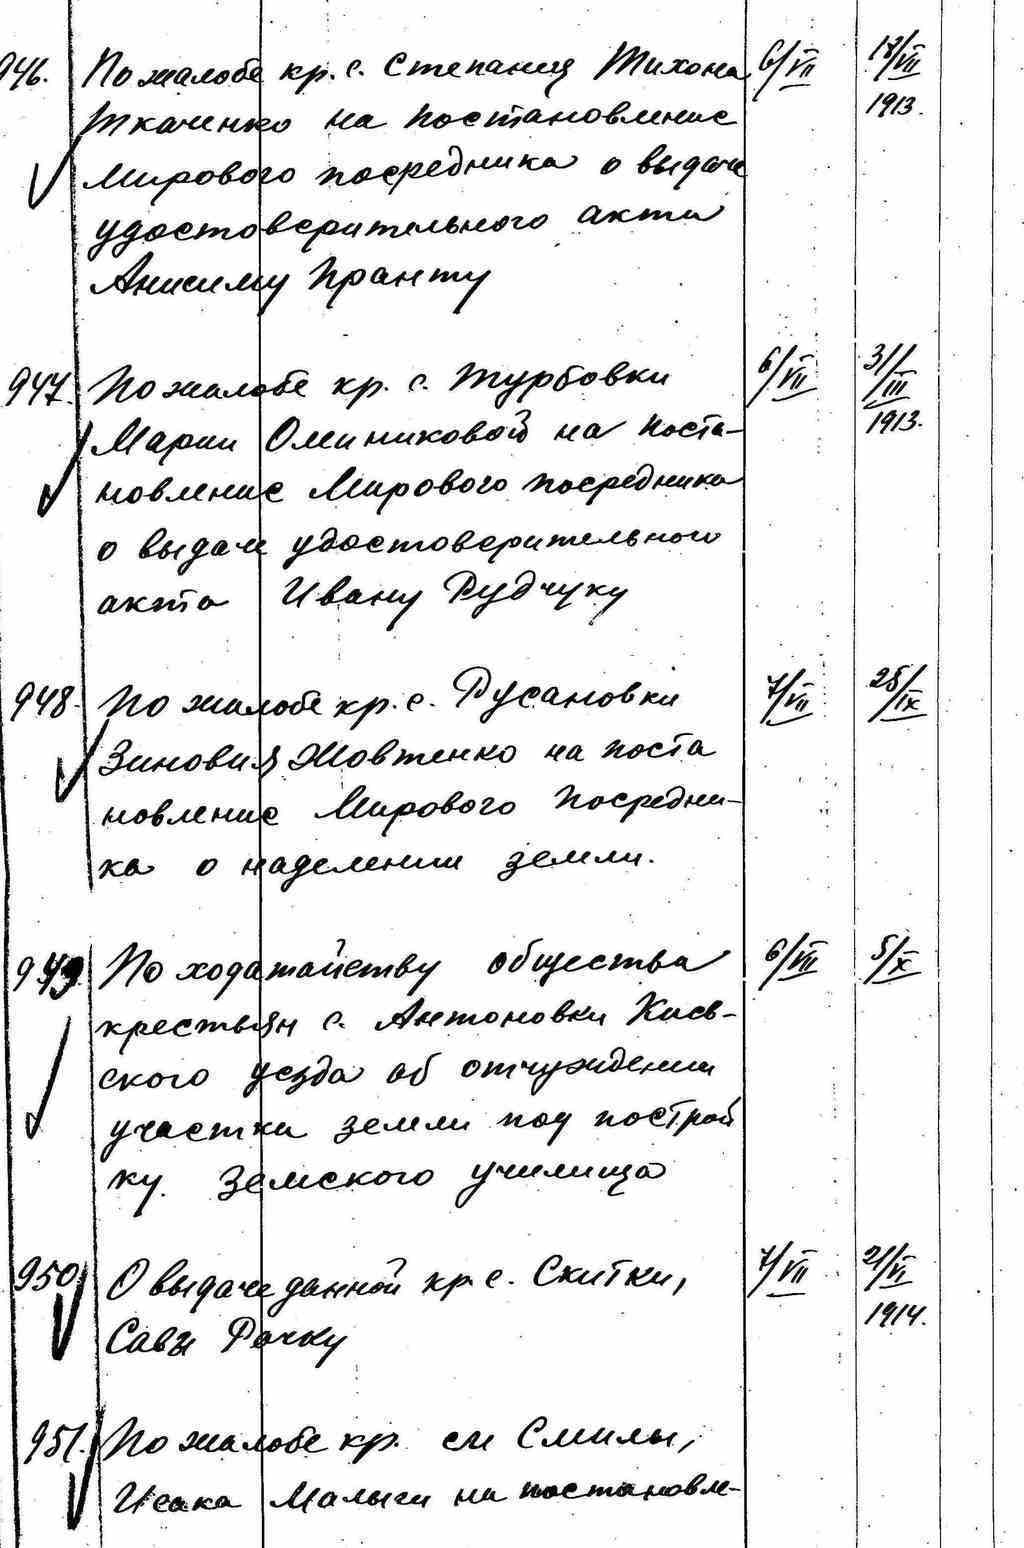 946. По жалобе кр. с. Степаниц Тихона 6/VII 17/VII
Ткаченко на постановление 1913.
Мирового посредника о выдаче
удостоверительного акта
Анисиму Пранту
947. По жалобе кр. с. Турбовки 6/VII 31/III
Марии Олиниковой на поста- 1913.
новление Мирового посредника
о выдаче удостоверительного
акта Ивану Рудчуку
948. По жалобе кр. с. Русановки 7/VII 25/IX
Зиновия Жовтенко на поста
новление Мирового Посредни-
ка о наделении земли.
949. По ходатайству общества 6/VII 5/X
крестьян с. Антоновки Киев-
ского уезда об отчуждении
участка земли под построй
ку земского училища
950. О выдаче данной кр. с. Скитки, 7/VII 21/VI
Савы Рачку 1914.
951. По жалобе кр. Смилы,
Исака Малыги на постановле-